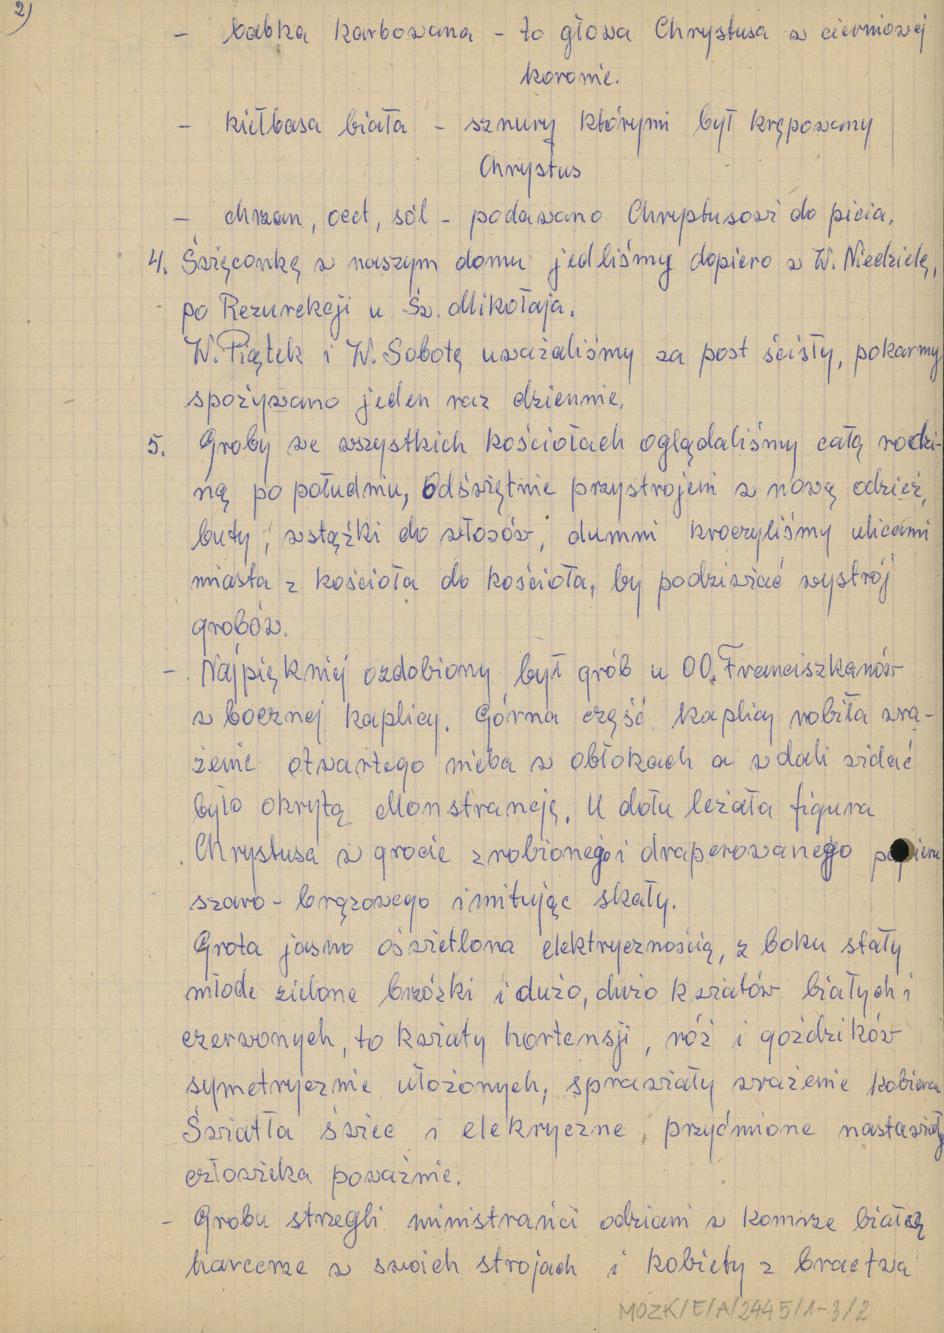 2)
- babka karbowana - to głowa Chrystusa w cierniowej
koronie.
- kiełbasa biała - sznury którymi był krępowany
Chrystus
- chrzan, ocet, sól - podawano Chrystusowi do picia.
4. Święconkę w naszym domu jedliśmy dopiero w W. Niedzielę,
po Rezurekcji u Św. Mikołaja.
W. Piątek i W. Sobotę uważaliśmy za post ścisły, pokarmy
spożywano jeden raz dziennie.
5. Groby we wszystkich kościołach oglądaliśmy całą rodzi-
ną po południu, Odświętnie przystrojeni w nową odzież,
buty, wstążki do włosów, dumni kroczyliśmy ulicami
miasta z kościoła do kościoła, by podziwiać wystrój
grobów.
- Najpiękniej ozdobiony był grób u OO. Franciszkanów
w bocznej kaplicy. Górna część kaplicy robiła wra-
żenie otwartego nieba w obłokach a w dali widać
było okrytą Monstrancję. U dołu leżała figura
Chrystusa w grocie zrobionego i draperowanego papieru
szaro-brązowego imitując skały.
Grota jasno oświetlona elektrycznością, z boku stały
młode zielone brzózki i dużo, dużo kwiatów białych i
czerwonych, to kwiaty hortensji, róż i goździków
symetrycznie ułożonych, sprawiały wrażenie kobierca
Światła świec i elekryczne, przyćmione nastawiały
człowieka poważnie.
- Grobu strzegli ministrańci odziani w komże białą
harcerze w swoich strojach i kobiety z bractwa
MOZK/E/A/2445/1-3/2